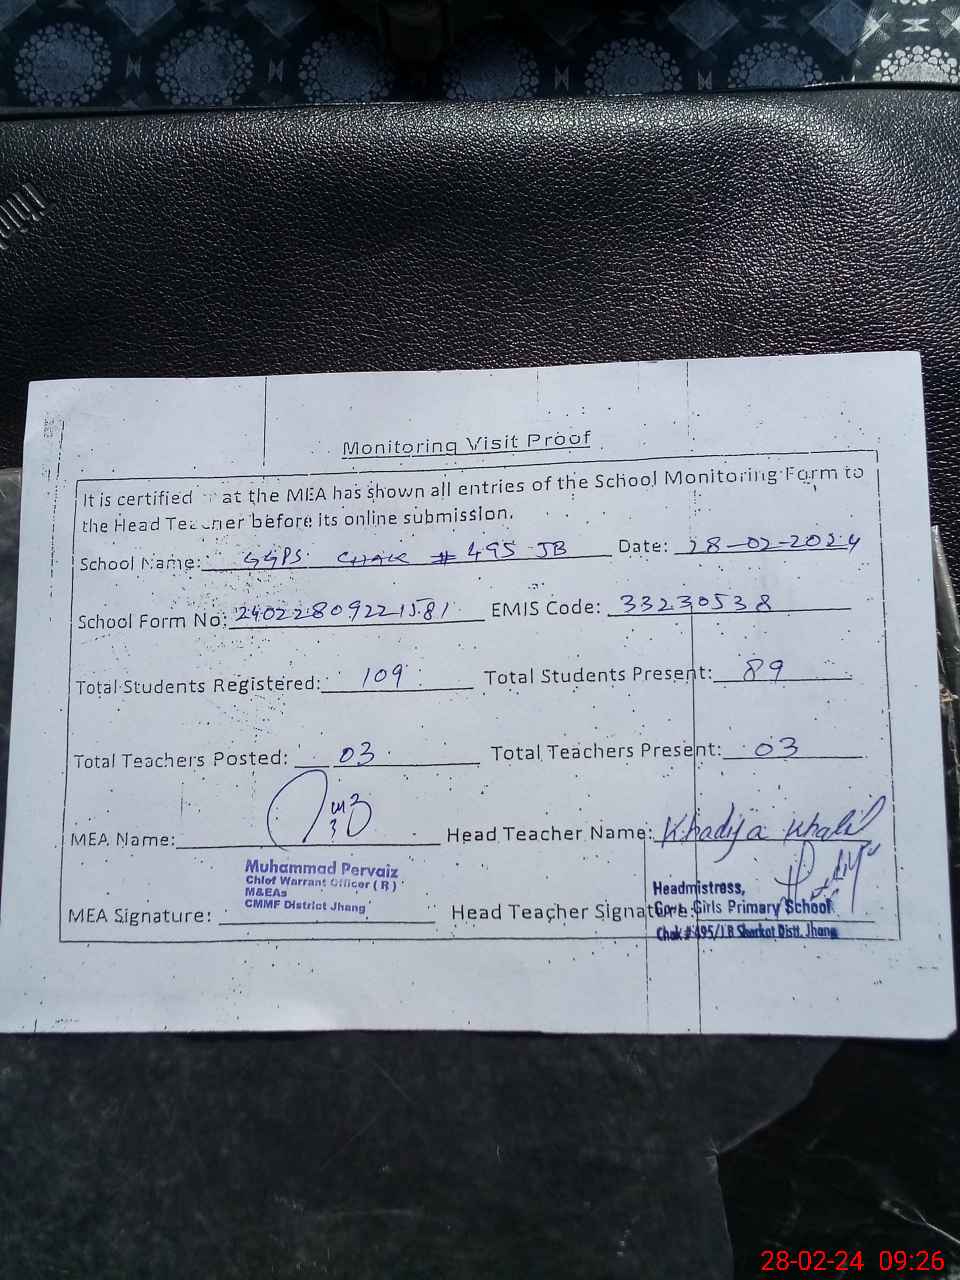 Monitoring Visit Proof
It is certified at the MEA has shown all entries of the School Monitoring Form to
the Head Teacher before its online submission.
School Name: GGPS CHAK # 495 JB Date: 28-02-2024
School Form No: 24022809221581 EMIS Code: 33230538
Total Students Registered: 109 Total Students Present: 89
Total Teachers Posted: 03 Total Teachers Present: 03
MEA Name: Head Teacher Name: Khadija Khalil
Muhammad Pervaiz
Chief Warrant Officer ( R )
M&EAs
CMMF District Jhang
MEA Signature: Head Teacher Signature:
Headmistress,
Govt. Girls Primary School
Chak # 495/J.B Shorkot Distt. Jhang
28-02-24 09:26